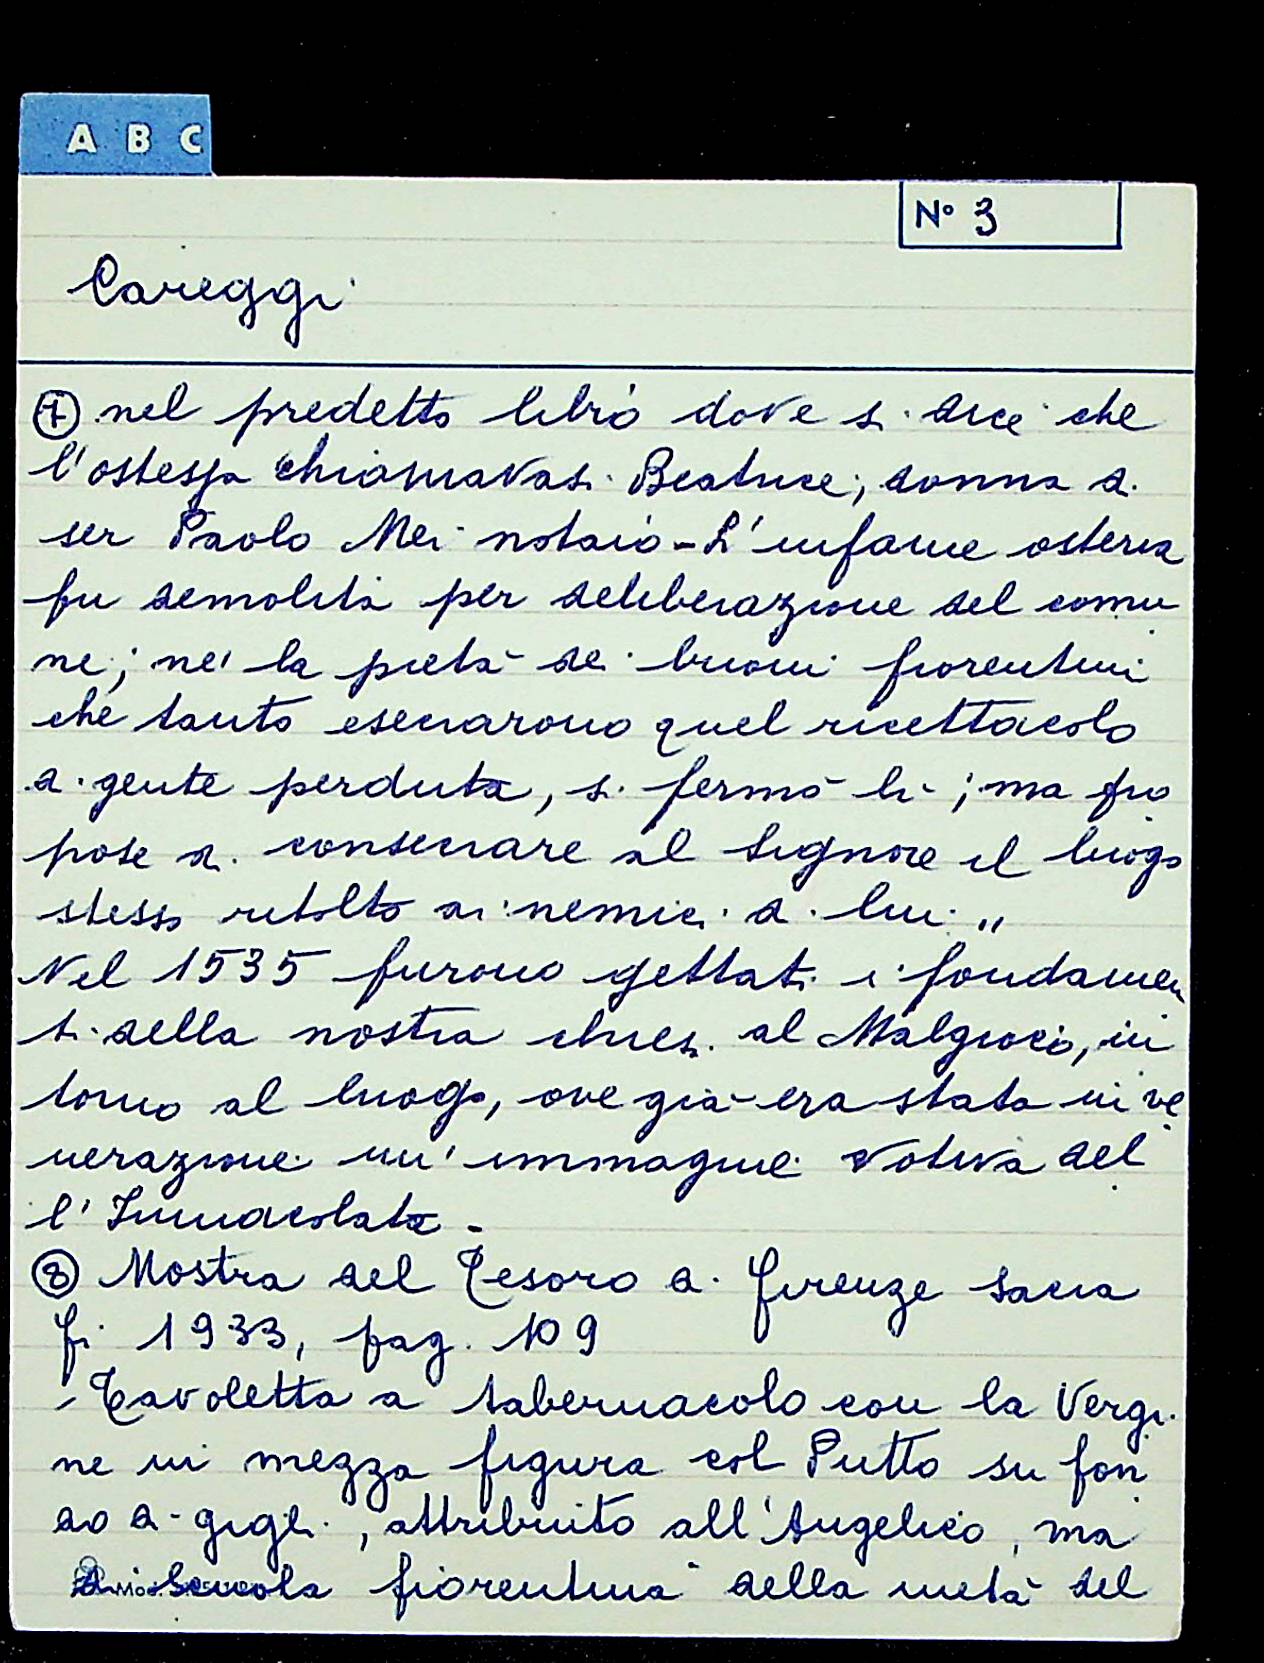 A B C
N° 3
Careggi
⑦ nel predetto libro dove si dice che
l'ostessa chiamavasi Beatrice, donna di
ser Paolo Mei notaio - L'infame osteria
fu demolita per deliberazione del comu
ne; né la pietà dei buoni fiorentini
che tanto esecrarono quel ricettacolo
di gente perduta, si fermò lì; ma pro
pose di consecrare al Signore il luogo
stesso ritolto ai nemici di lui "
Nel 1535 furono gettati i fondamen
ti della nostra chiesi al Malgioco, in
torno al luogo, ove già era stata in ve
nerazione un'immagine votiva del
l'Immacolata -
⑧ Mostra del Tesoro di Firenze sacra
Fi 1933, pag. 109
Tavoletta a tabernacolo con la Vergi
ne in mezza figura col Putto su fon
do di gigli, attribuito all'Angelico, ma
di scuola fiorentina della metà del